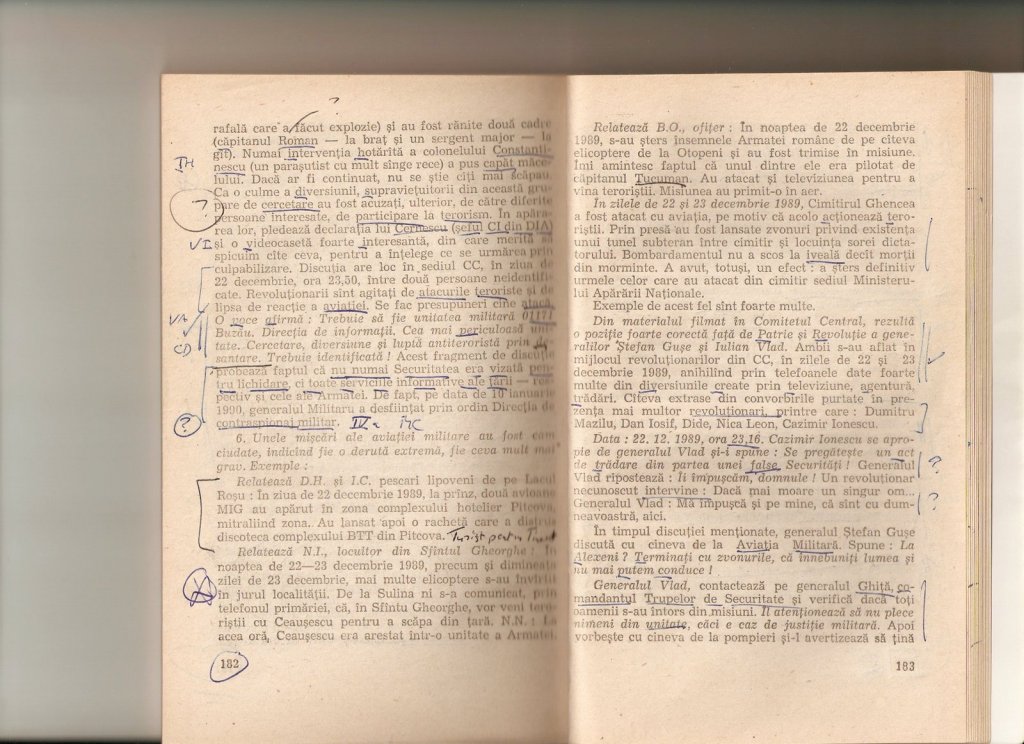 rafală care a făcut explozie) și au fost rănite două cadre
(căpitanul Roman — la braț și un sergent major — la
gît). Numai intervenția hotărîtă a colonelului Constanti-
nescu (un parașutist cu mult singe rece) a pus capăt măce-
lului. Dacă ar fi continuat, nu se știe cîți mai scăpau.
Ca o culme a diversiunii, supraviețuitorii din această gru-
pare de cercetare au fost acuzați, ulterior, de către diferite
persoane interesate, de participare la terorism. În apăra-
rea lor, pledează declarația lui Cernescu (șeful CI din DIA)
și o videocasetă foarte interesantă, din care merită să
spicuim cîte ceva, pentru a înțelege ce se urmărea prin
culpabilizare. Discuția are loc în sediul CC, în ziua de
22 decembrie, ora 23,50, între două persoane neidentifi-
cate. Revoluționarii sînt agitați de atacurile teroriste și de
lipsa de reacție a aviației. Se fac presupuneri cine atacă.
O voce afirmă : Trebuie să fie unitatea militară 01171
Buzău. Direcția de informații. Cea mai periculoasă uni-
tate. Cercetare, diversiune și luptă antiteroristă prin
santare. Trebuie identificată ! Acest fragment de discuție
probează faptul că nu numai Securitatea era vizată pen-
tru lichidare, ci toate serviciile informative ale țării — res-
pectiv și cele ale Armatei. De fapt, pe data de 10 ianuarie
1990, generalul Militaru a desființat prin ordin Direcția de
contraspionaj militar.
6. Unele mișcări ale aviației militare au fost cam
ciudate, indicînd fie o derută extremă, fie ceva mult mai
grav. Exemple :
Relatează D.H. și I.C. pescari lipoveni de pe Lacul
Roșu : În ziua de 22 decembrie 1989, la prînz, două avioane
MIG au apărut în zona complexului hotelier Pitcova,
mitraliind zona. Au lansat apoi o rachetă care a distrus
discoteca complexului BTT din Pitcova.
Relatează N.I., locuitor din Sfîntul Gheorghe : În
noaptea de 22—23 decembrie 1989, precum și dimineața
zilei de 23 decembrie, mai multe elicoptere s-au învîrtit
în jurul localității. De la Sulina ni s-a comunicat, prin
telefonul primăriei, că, în Sfîntu Gheorghe, vor veni tero-
riștii cu Ceaușescu pentru a scăpa din țară. N.N. : La
acea oră, Ceaușescu era arestat într-o unitate a Armatei.
182
Relatează B.O., ofițer : În noaptea de 22 decembrie
1989, s-au șters însemnele Armatei române de pe cîteva
elicoptere de la Otopeni și au fost trimise în misiune.
Îmi amintesc faptul că unul dintre ele era pilotat de
căpitanul Tucuman. Au atacat și televiziunea pentru a
vîna teroriștii. Misiunea au primit-o în aer.
În zilele de 22 și 23 decembrie 1989, Cimitirul Ghencea
a fost atacat cu aviația, pe motiv că acolo acționează tero-
riștii. Prin presă au fost lansate zvonuri privind existența
unui tunel subteran între cimitir și locuința sorei dicta-
torului. Bombardamentul nu a scos la iveală decît morții
din morminte. A avut, totuși, un efect : a șters definitiv
urmele celor care au atacat din cimitir sediul Ministeru-
lui Apărării Naționale.
Exemple de acest fel sînt foarte multe.
Din materialul filmat în Comitetul Central, rezultă
o poziție foarte corectă față de Patrie și Revoluție a gene-
ralilor Ștefan Gușe și Iulian Vlad. Ambii s-au aflat în
mijlocul revoluționarilor din CC, în zilele de 22 și 23
decembrie 1989, anihilînd prin telefoanele date foarte
multe din diversiunile create prin televiziune, agentură,
trădări. Cîteva extrase din convorbirile purtate în pre-
zența mai multor revoluționari, printre care : Dumitru
Mazilu, Dan Iosif, Dide, Nica Leon, Cazimir Ionescu.
Data : 22. 12. 1989, ora 23,16. Cazimir Ionescu se apro-
pie de generalul Vlad și-i spune : Se pregătește un act
de trădare din partea unei false Securități ! Generalul
Vlad ripostează : Îi împușcăm, domnule ! Un revoluționar
necunoscut intervine : Dacă mai moare un singur om...
Generalul Vlad : Mă împușcă și pe mine, că sînt cu dum-
neavoastră, aici.
În timpul discuției menționate, generalul Ștefan Gușe
discută cu cineva de la Aviația Militară. Spune : La
Alexeni ? Terminați cu zvonurile, că înnebuniți lumea și
nu mai putem conduce !
Generalul Vlad, contactează pe generalul Ghiță, co-
mandantul Trupelor de Securitate și verifică dacă toți
oamenii s-au întors din misiuni. Îl atenționează să nu plece
nimeni din unitate, căci e caz de justiție militară. Apoi
vorbește cu cineva de la pompieri și-l avertizează să țină
183